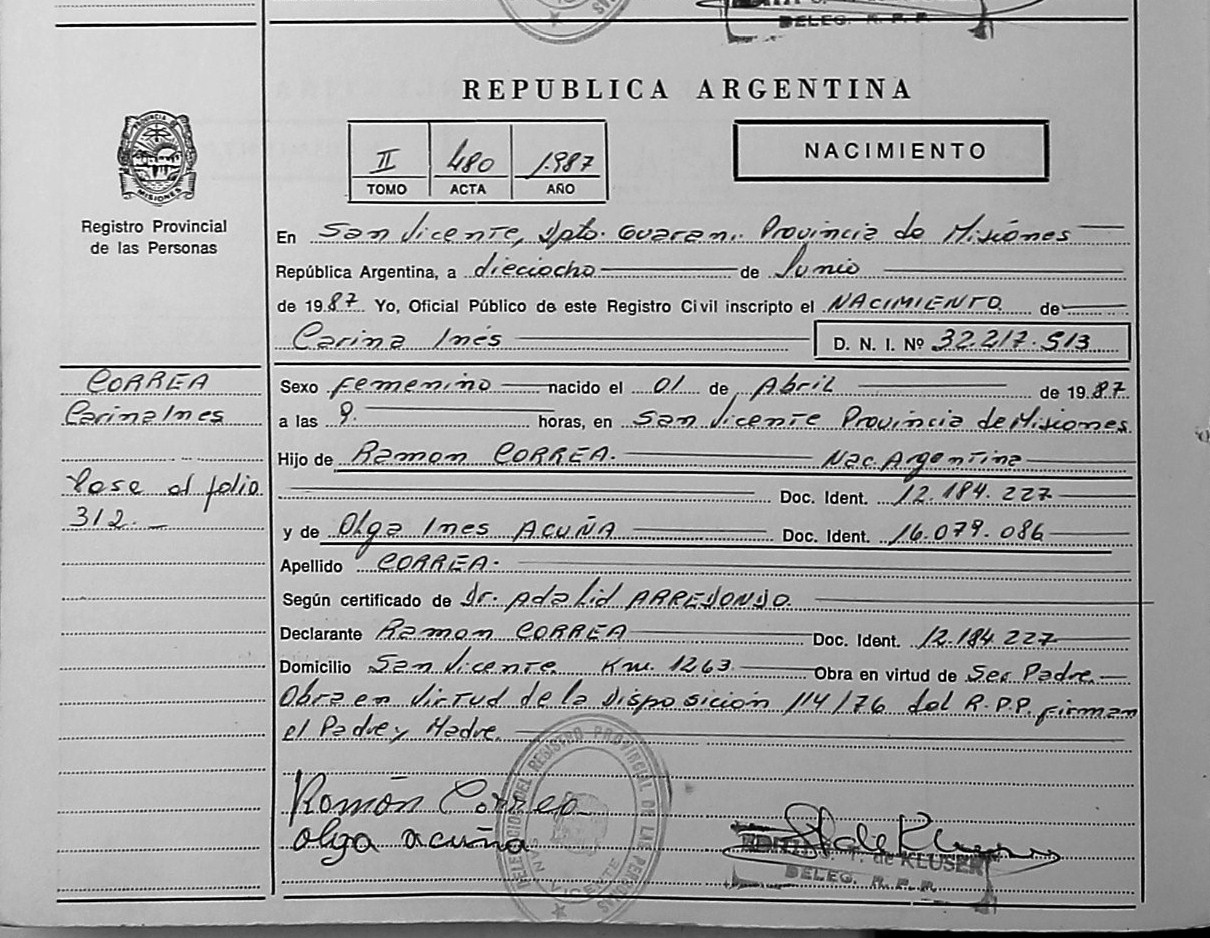 DELEG. R. P. P.
REPUBLICA ARGENTINA
PROVINCIA DE
MISIONES
Registro Provincial
de las Personas
II 480 1987
TOMO ACTA AÑO
NACIMIENTO
En San Vicente, Dpto. Guarani. Provincia de Misiones
República Argentina, a dieciocho de Junio
de 1987 Yo, Oficial Público de este Registro Civil inscripto el NACIMIENTO de
Carina Inés D. N. I. Nº 32.217.513
CORREA
Carina Ines
Pase al folio
312.
Sexo femenino nacido el 01 de Abril de 1987
a las 9. horas, en San Vicente Provincia de Misiones
Hijo de Ramon CORREA. Nac. Argentina
Doc. Ident. 12.184.227
y de Olga Ines ACUÑA Doc. Ident. 16.079.086
Apellido CORREA.
Según certificado de Dr. Adalid ARREDONDO.
Declarante Ramon CORREA Doc. Ident. 12.184.227
Domicilio San Vicente Km. 1263 Obra en virtud de Ser Padre.
Obra en virtud de la Disposición 114/76 del R.P.P. firman
el Padre y Madre.
Ramón Correa
olga acuña
DELEGACION DEL REGISTRO PROVINCIAL DE LAS PERSONAS
SAN VICENTE
EDITH S. T. de KLUSER
DELEG. R. P. P.